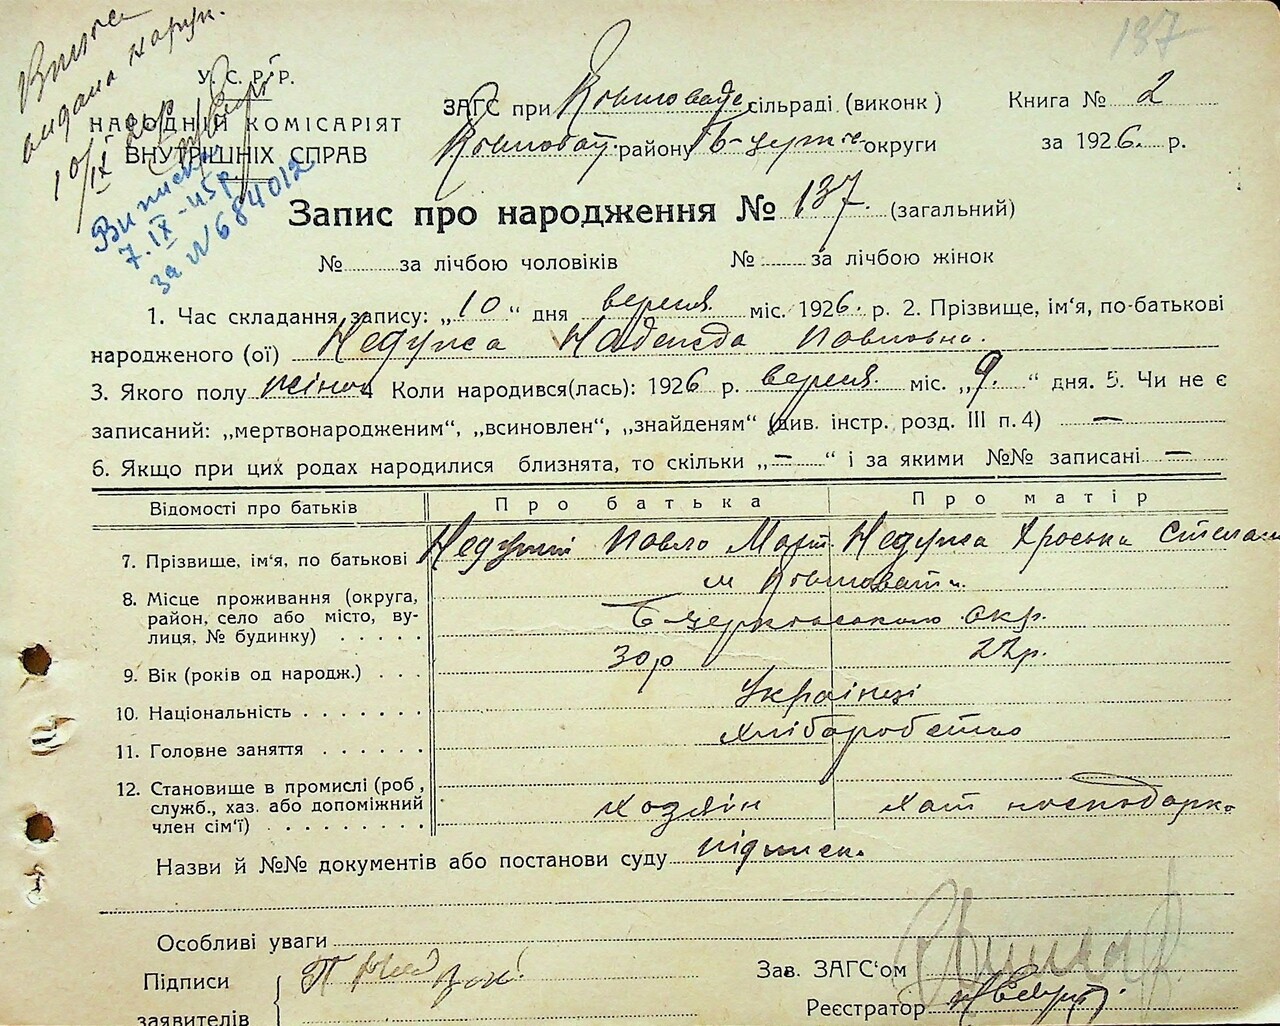 137
видана на руки
10/IX
Виписка
7.IX-45р.
за № 684012
У. С. Р. Р.
НАРОДНІЙ КОМІСАРІЯТ
ВНУТРІШНІХ СПРАВ
ЗАГС при Ковшовате сільраді (виконк) Книга № 2
Ковшоват. району Б-церків округи за 1926. р.
Запис про народження № 137. (загальний)
№ за лічбою чоловіків № за лічбою жінок
1. Час складання запису: „10“ дня вересня міс. 1926. р. 2. Прізвище, ім‘я, по-батькові
народженого (ої) Надежда Павловна.
3. Якого полу жіноч 4 Коли народився(лась): 1926 р. вересня. міс. „9.“ дня. 5. Чи не є
записаний: „мертвонародженим“, „всиновлен“, „знайденям“ (див. інстр. розд. III п. 4) —
6. Якщо при цих родах народилися близнята, то скільки „—“ і за якими №№ записані —
Відомості про батьків Про батька Про матір
7. Прізвище, ім‘я, по батькові Павло Март.
8. Місце проживання (округа, м Ковшовати.
район, село або місто, ву- Б-церковського окр.
лиця, № будинку)
9. Вік (років од народж.) 30р 22р.
10. Національність Українці
11. Головне заняття хліборобство
12. Становище в промислі (роб,
служб., хаз. або допоміжний хозяїн хат господарка
член сім‘ї)
Назви й №№ документів або постанови суду підписк.
Особливі уваги
Підписи
заявителів
Зав. ЗАГС‘ом
Реєстратор